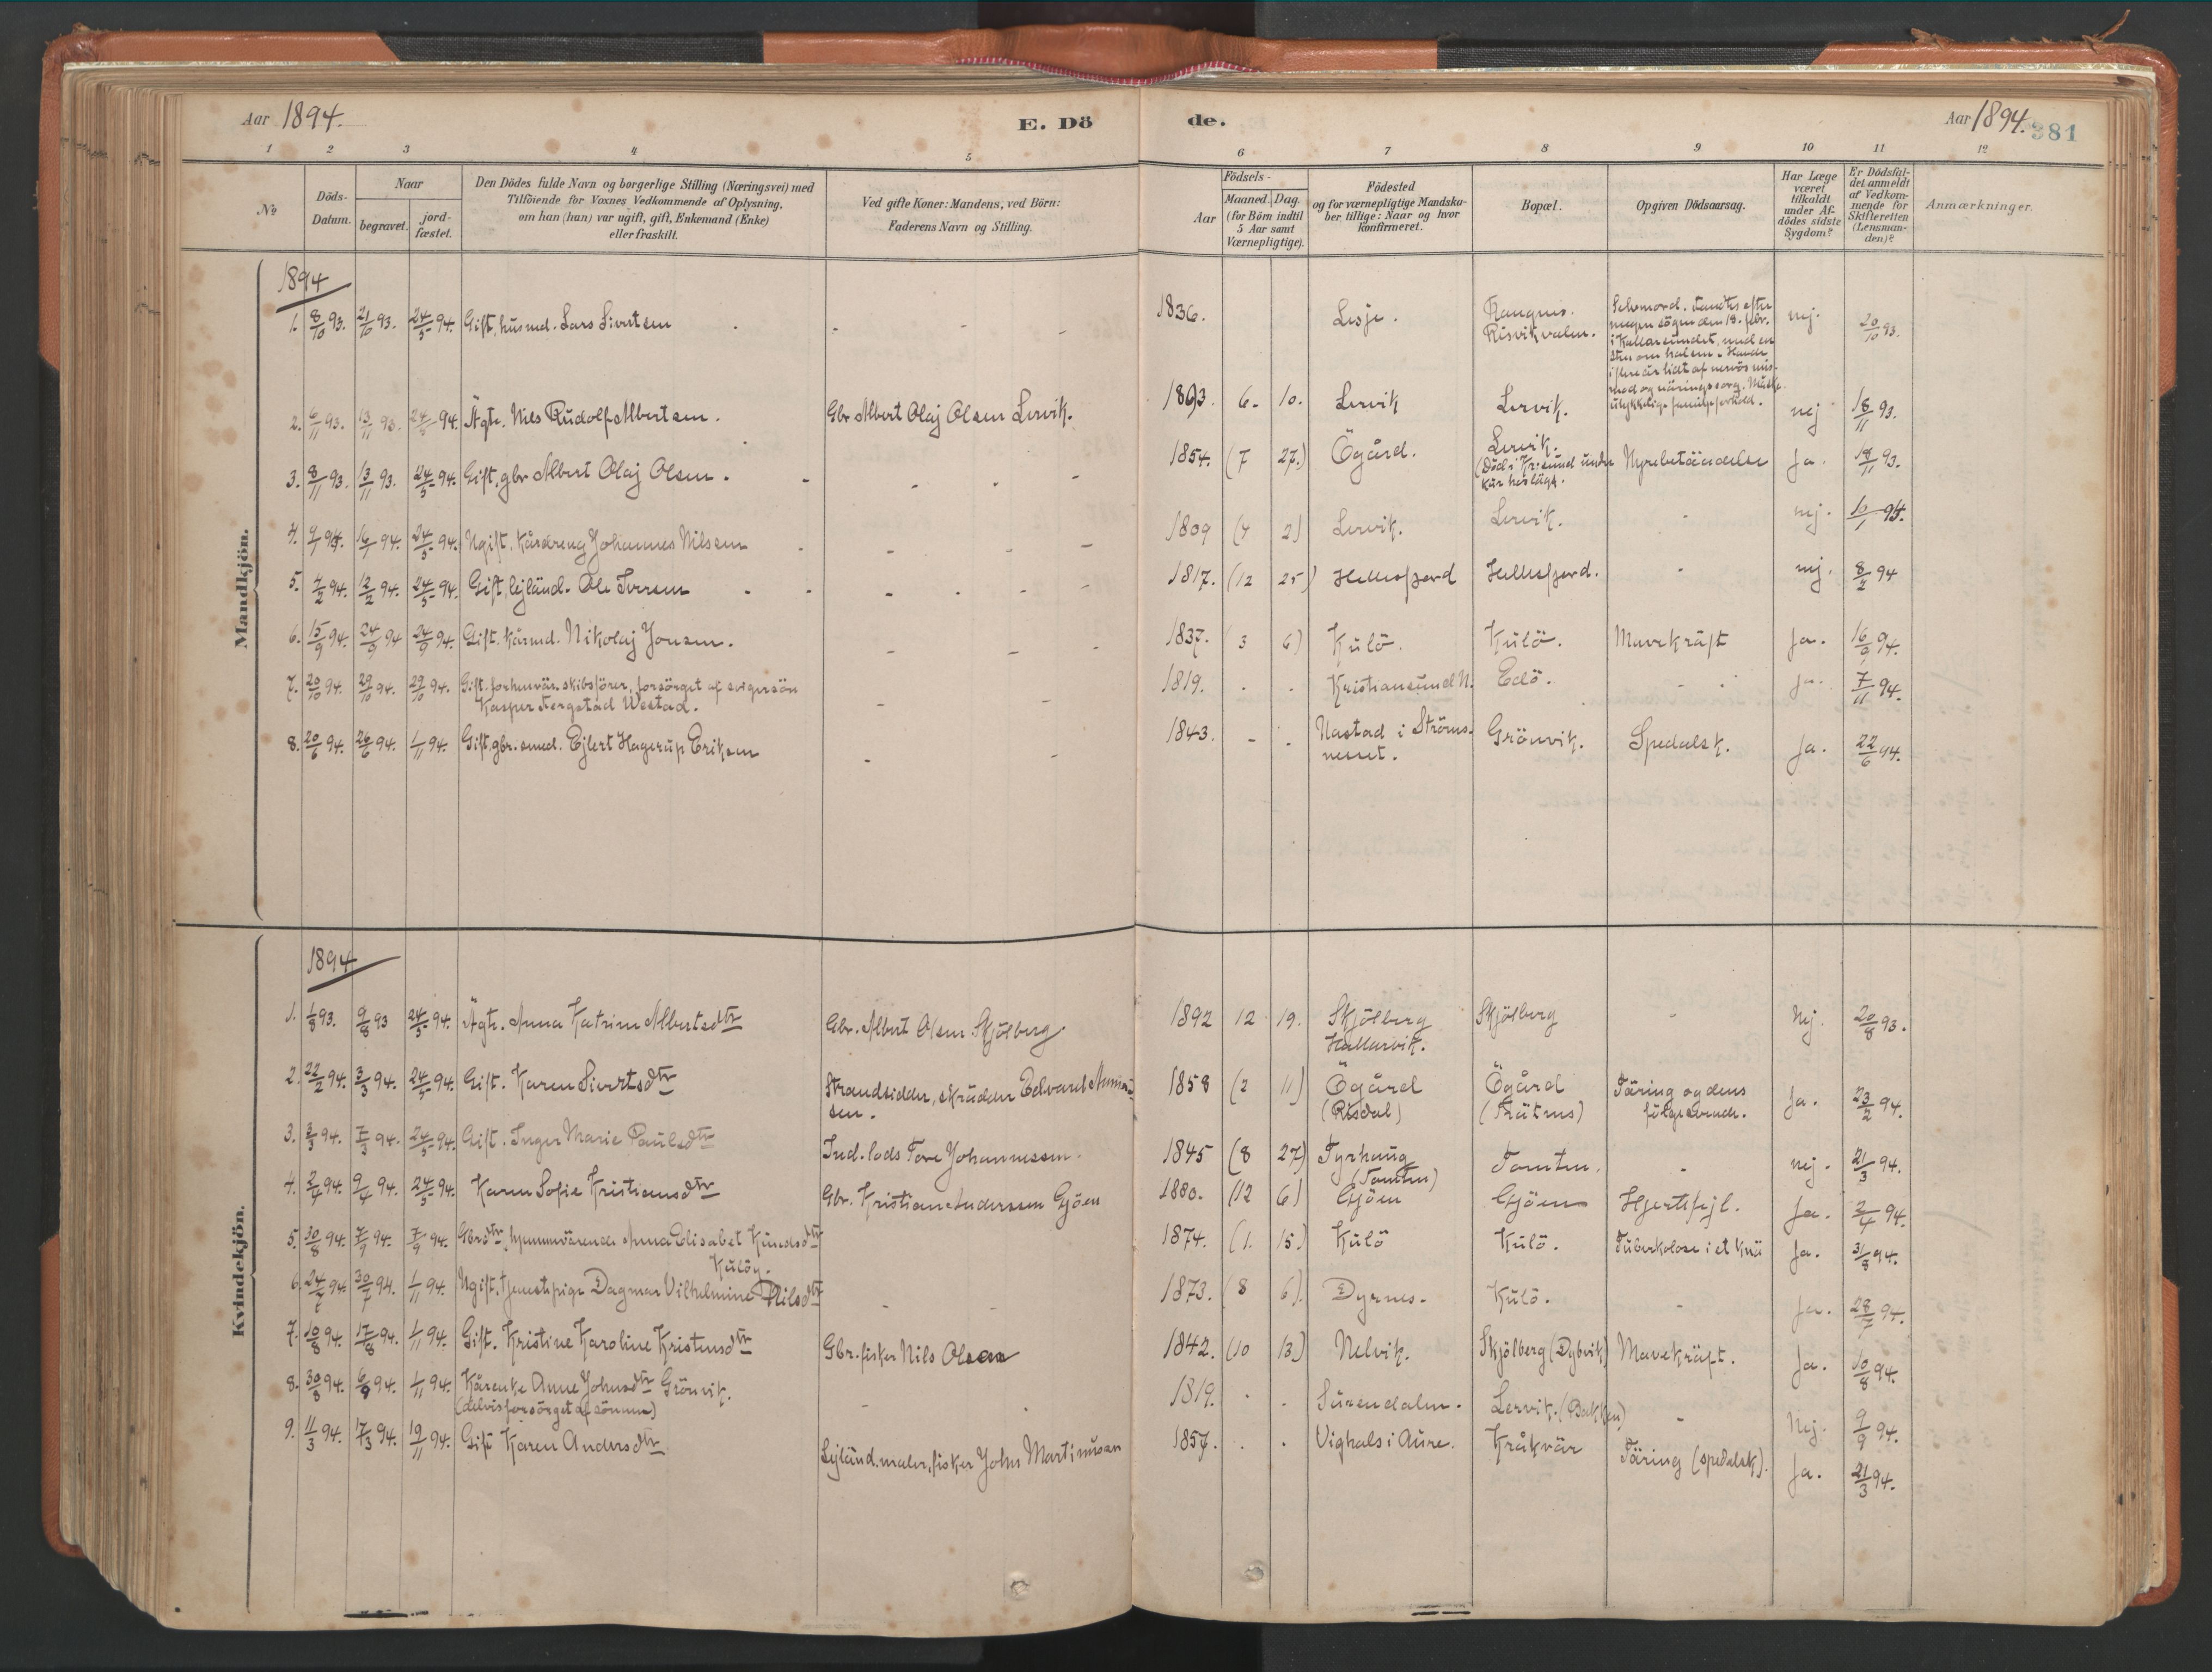 Aar 1894.
E. Dö
de.
Aar 1894.
381
1 2 3 4 5 6 7 8 9 10 11 12
№
Döds-
Datum.
Naar
begravet.
jord-
fæstet.
Den Dödes fulde Navn og borgerlige Stilling (Næringsvei) med
Tilföiende for Voxnes Vedkommende af Oplysning,
om han (hun) var ugift, gift, Enkemand (Enke)
eller fraskilt.
Ved gifte Koner: Mandens, ved Börn:
Faderens Navn og Stilling.
Födsels-
Aar
Maaned.
Dag.
(for Börn indtil
5 Aar samt
Værnepligtige).
Födested
og for værnepligtige Mandska-
ber tillige: Naar og hvor
konfirmeret.
Bopæl.
Opgiven Dödsaarsag.
Har Læge
været
tilkaldt
under Af-
dödes sidste
Sygdom?
Er Dödsfal-
det anmeldt
af Vedkom-
mende for
Skifteretten
(Lensman-
den)?
Anmærkninger.
Mandkjön.
1894
1. 8/10 93. 21/10 93. 24/5 94. Gift, husmd. Lars Sivertsen - - - 1836. Lesje. Risvikvalen. nej. 20/10 93.
Selvmord. fandtes efter
i Kallarsundet, med en
sten om halsen. Havde
i flere år lidt af nervös mis-
mod og näringssorg.
ulykkelige familjeforhold.
2. 6/11 93. 13/11 93. 24/5 94. Ägte. Nils Rudolf Albertsen. Gbr Albert Olaj Olsen Lervik. 1893. 6. 10. Lervik Lervik. nej 18/11 93.
3. 8/11 93. 13/11 93. 24/5 94. Gift, gbr Albert Olaj Olsen. - - - 1854. (7 27.) Ögård. Lervik. Nyrebetändelse Ja. 18/11 93.
(Död i Krsund under
4. 9/1 94. 16/1 94. 24/5 94. Ugift. Kårdreng Johannes Nilssen - - - 1809 (4 2) Lervik. Lervik. - nej. 10/1 94.
5. 4/2 94. 12/2 94. 24/5 94. Gift, lejländ. Ole Iversen - - - 1817. (12 25) Hellesfjord Hellesfjord. - nej. 8/2 94
6. 15/9 94. 24/9 94 24/9 94. Gift. kårmd. Nikolaj Jonsen. - - - 1837. (3 6) Kulö. Kulö. Mavekräft Ja. 16/9 94.
7. 20/10 94. 29/10 94. 29/10 94. Gift. forhenvär. skibsförer, forsörget af svigersön - - 1819. - - Kristiansund N. Edö. - - ja. 7/11 94.
Kasper Westad.
8. 20/6 94. 26/6 94. 1/11 94. Gift, gbr. smed. Ejlert Hagerup Eriksen - - 1843. - - Nastad i Ströms- Grönvik. Spedalsk. Ja. 22/6 94.
nesset.
Kvindekjön.
1894
1. 1/8 93. 9/8 93 24/5 94. Ägte. Anna Katrine Albertsdtr Gbr. Albert Olsen Skjölberg. 1892 12 19. Skjölberg Skjölberg - Nej. 20/8 93.
Hallarvik.
2. 22/2 94. 3/3 94. 24/5 94. Gift. Karen Sivertsdtr Strandsidder, skrädder Edvard 1858 (2 11) Ögård Ögård Täring og dens Ja. 23/2 94.
sen. (Risdal) følgesvende.
3. 3/3 94. 7/3 94. 24/5 94. Gift. Inger Marie Paulsdtr Ind. lods Tore Johannessen. 1845 (8 27) Tyrhaug Tomten. - nej. 21/3 94.
(Tomten)
4. 2/4 94. 9/4 94. 24/5 94. Karen Sofie Kristiansdtr Gbr. Kristian Anderssen Gjöen 1880. (12 6) Gjöen Gjöen Hjertefejl. Ja. 2/4 94.
5. 30/8 94. 7/9 94. 7/9 94. Gbrdtr, hjemmevärende Anna Elisabet Knudsdtr 1874. (1. 15.) Kulö Kulö. Tuberkolose i et knä Ja. 31/8 94.
Kulöy.
6. 24/7 94. 30/7 94. 1/11 94. Ugift. tjenestpige Dagmar Vilhelmine Nilsdtr - - 1873. (8 6). Dyrnes. Kulö. - Ja. 28/7 94.
7. 10/8 94. 17/8 94. 1/11 94. Gift. Kristine Karoline Kristensdtr Gbr. fisker Nils Olsen 1842. (10 13) Nelvik. Skjölberg (Dybvik) Mavekräft. Ja. 10/8 94.
8. 30/8 94. 6/9 94. 1/11 94. Kårenke Anne Johnsdtr Grönvik. - - 1819. - - Surendalen. Lervik. (Bakken) - Nej. 9/9 94.
(delvis forsörget af sönnen)
9. 11/3 94. 17/3 94. 19/11 94. Gift Karen Andersdtr Lejländ. maler, fisker John Martinusen 1857. - - Vighals i Aure. Kråkvär Täring (spedalsk). Ja. 21/3 94.